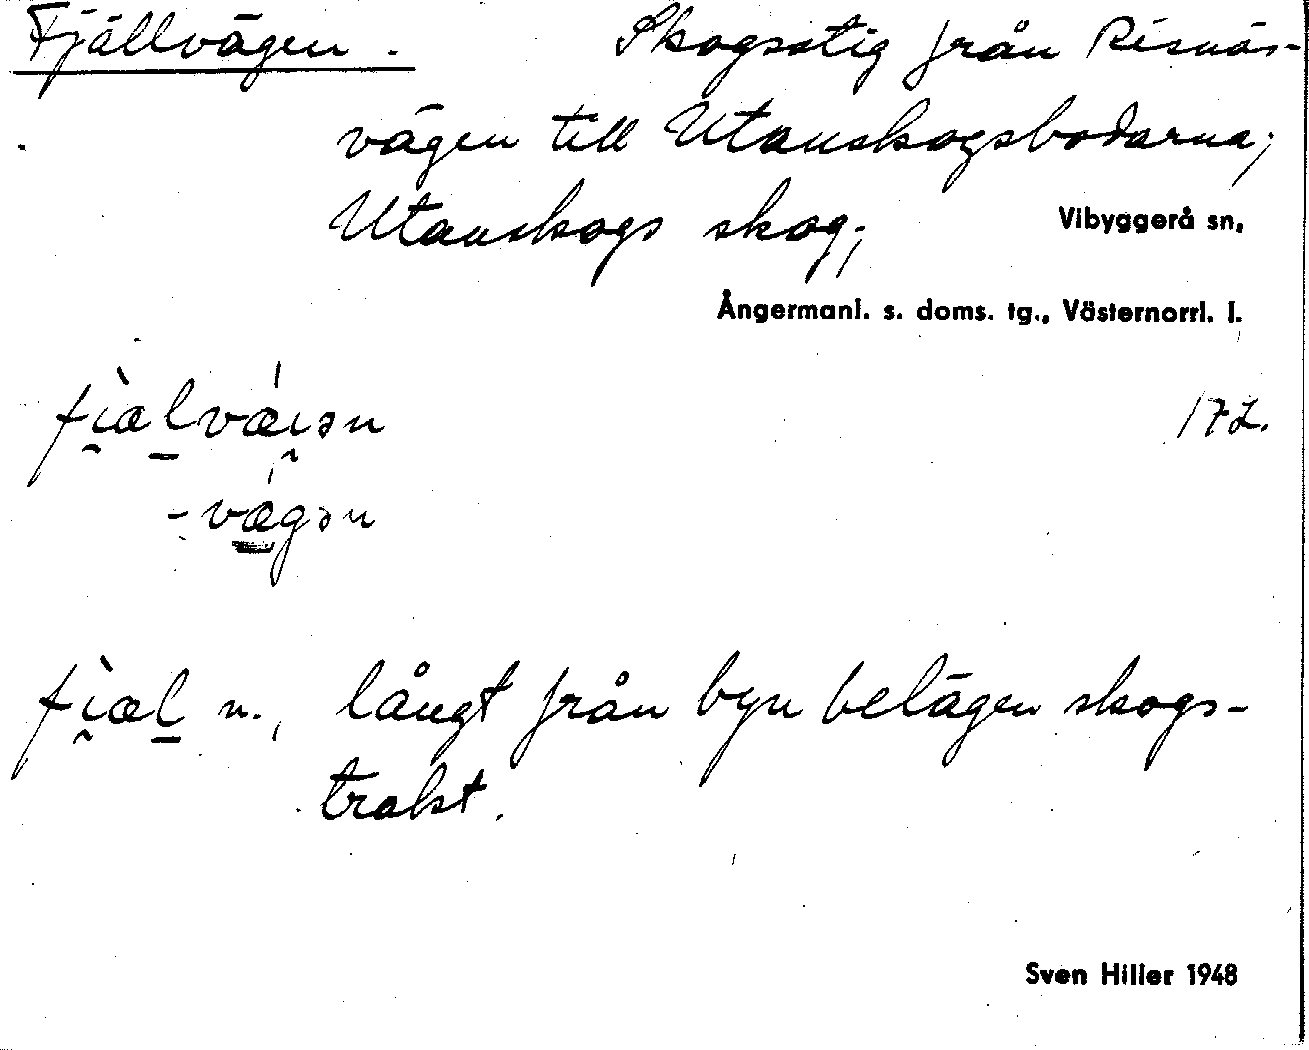 Fjällvägen. Skogsstig från Risnäs-
vägen till Utanskogsbodarna;
Utanskogs skog; Vibyggerå sn,
Ångermanl. s. doms. tg., Västernorrl. l.
fi̯æl̠væi̯ən 172.
-vægən
fi̯æl̠ n., långt från byn belägen skogs-
trakt.
Sven Hiller 1948